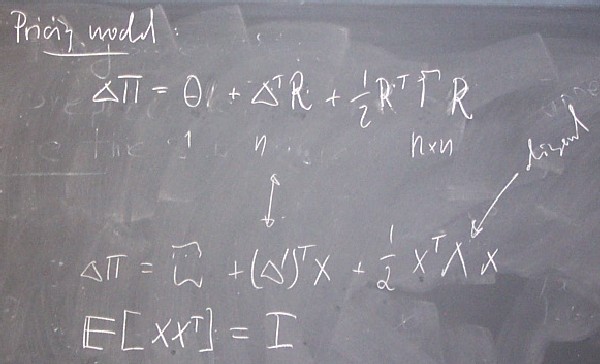 Pricing model:
ΔΠ = θ + Δᵀ R + ½ Rᵀ Γ R
1 n n×n
diagonal
ΔΠ = + (Δ')ᵀ X + ½ Xᵀ Λ X
E[XXᵀ] = I